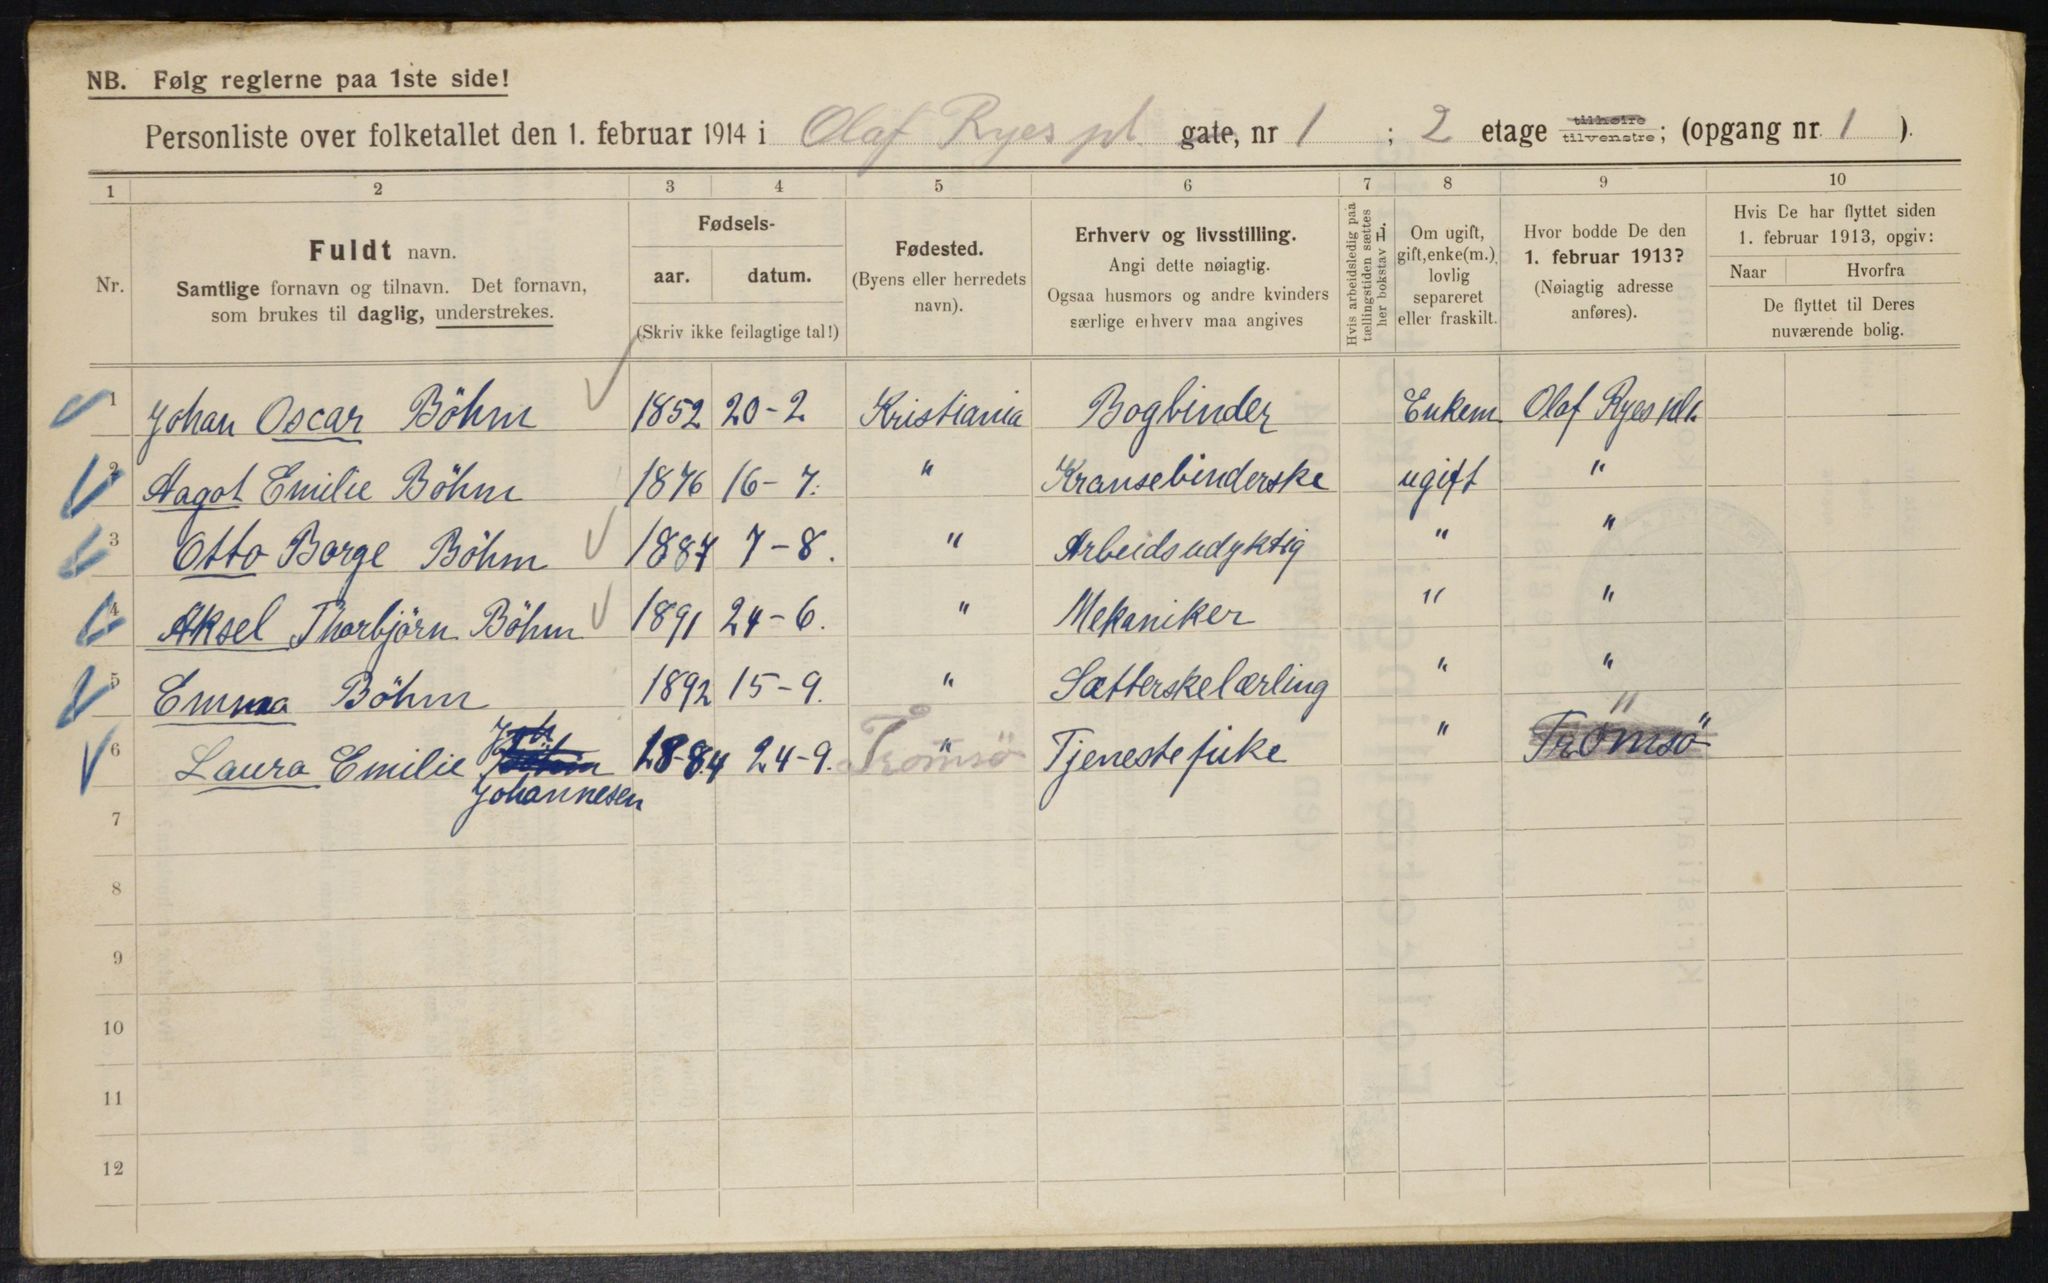 NB. Følg reglerne paa 1ste side!
Personliste over folketallet den 1. februar 1914 i Olaf Ryes pl. gate, nr 1 ; 2 etage tilhøire tilvenstre; (opgang nr. 1 ).
1 2 3 4 5 6 7 8 9 10
Nr.
Fuldt navn.
Samtlige fornavn og tilnavn. Det fornavn,
som brukes til daglig, understrekes.
Fødsels-
aar. datum.
(Skriv ikke feilagtige tal!)
Fødested.
(Byens eller herredets
navn).
Erhverv og livsstilling.
Angi dette nøiagtig.
Ogsaa husmors og andre kvinders
særlige erhverv maa angives
Hvis arbeidsledig paa
tællingstiden sættes
her bokstav L.
Om ugift,
gift, enke(m.),
lovlig
separeret
eller fraskilt.
Hvor bodde De den
1. februar 1913?
(Nøiagtig adresse
anføres).
Hvis De har flyttet siden
1. februar 1913, opgiv:
Naar Hvorfra
De flyttet til Deres
nuværende bolig.
1 Johan Oscar Böhm 1852 20-2 Kristiania Bogbinder Enkem Olaf Ryes pl 1.
2 Aagot Emilie Böhm 1876 16-7. " Kransebinderske ugift "
3 Otto Borge Böhm 1887 7-8. " Arbeidsudyktig " "
4 Aksel Thorbjörn Böhm 1891 24-6. " Mekaniker " "
5 Emma Böhm 1892 15-9. " Sætterskelærling " "
6 Laura Emilie Johannesen 1884 24-9. " Tromsö Tjenestepike " Tromsö "
7
8
9
10
11
12